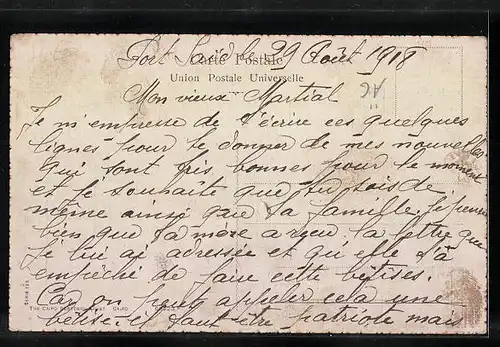 Port Said le 29 Août 1918
Carte Postale
Union Postale Universelle
AG
Mon vieux Martial
Je m'empresse de t'écrire ces quelques
lignes pour te donner de mes nouvelles
qui sont très bonnes pour le moment
et je souhaite que tu sois de
même ainsi que ta famille. Je pense
bien que ta mère a reçu la lettre que
je lui ai adressée et qu'elle t'a
empêché de faire cette bêtises.
Car on peux appeler cela une
THE CAIRO POSTCARD TRUST CAIRO
bêtise. il faut être patriote mais